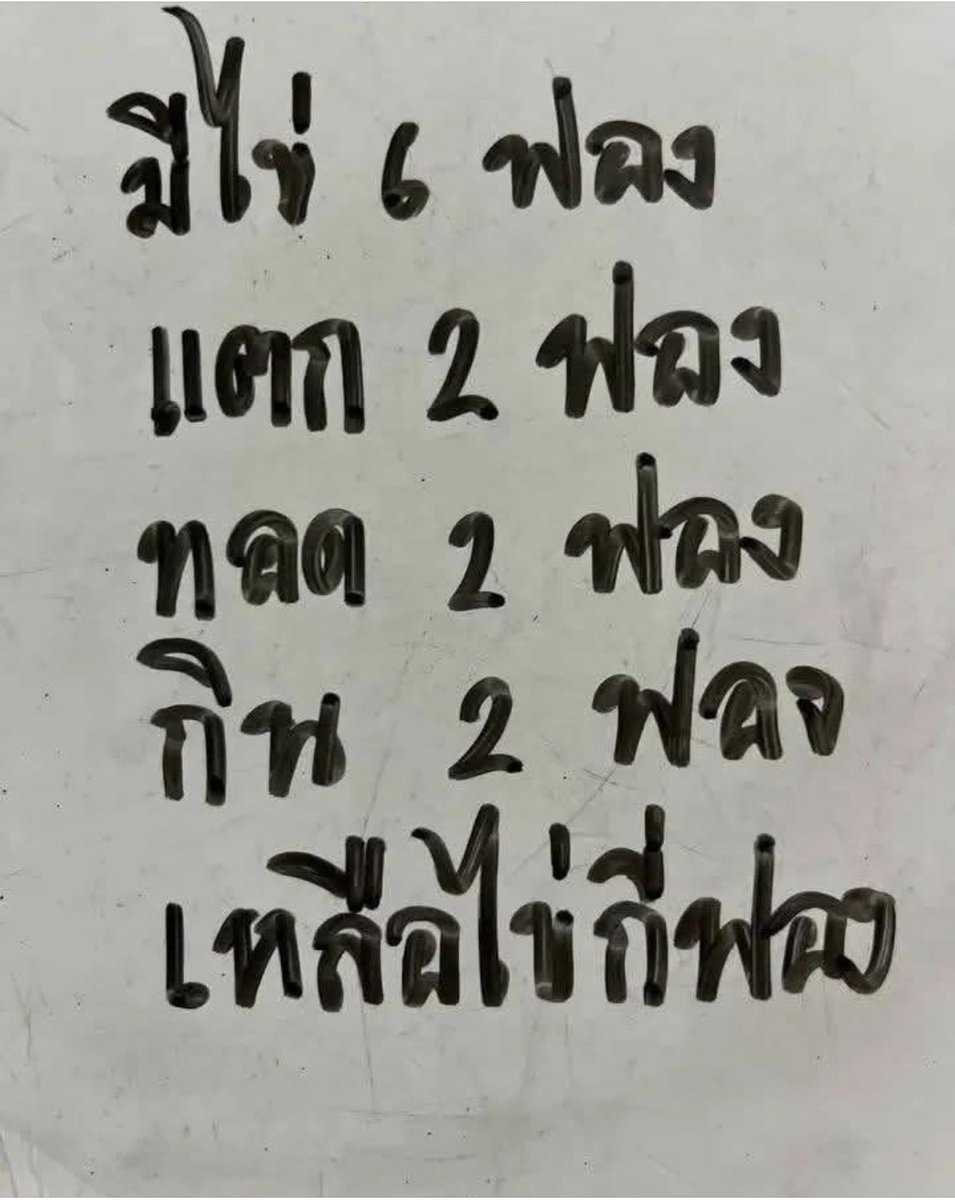 มีไข่ 6 ฟอง
แตก 2 ฟอง
ทอด 2 ฟอง
กิน 2 ฟอง
เหลือไข่กี่ฟอง